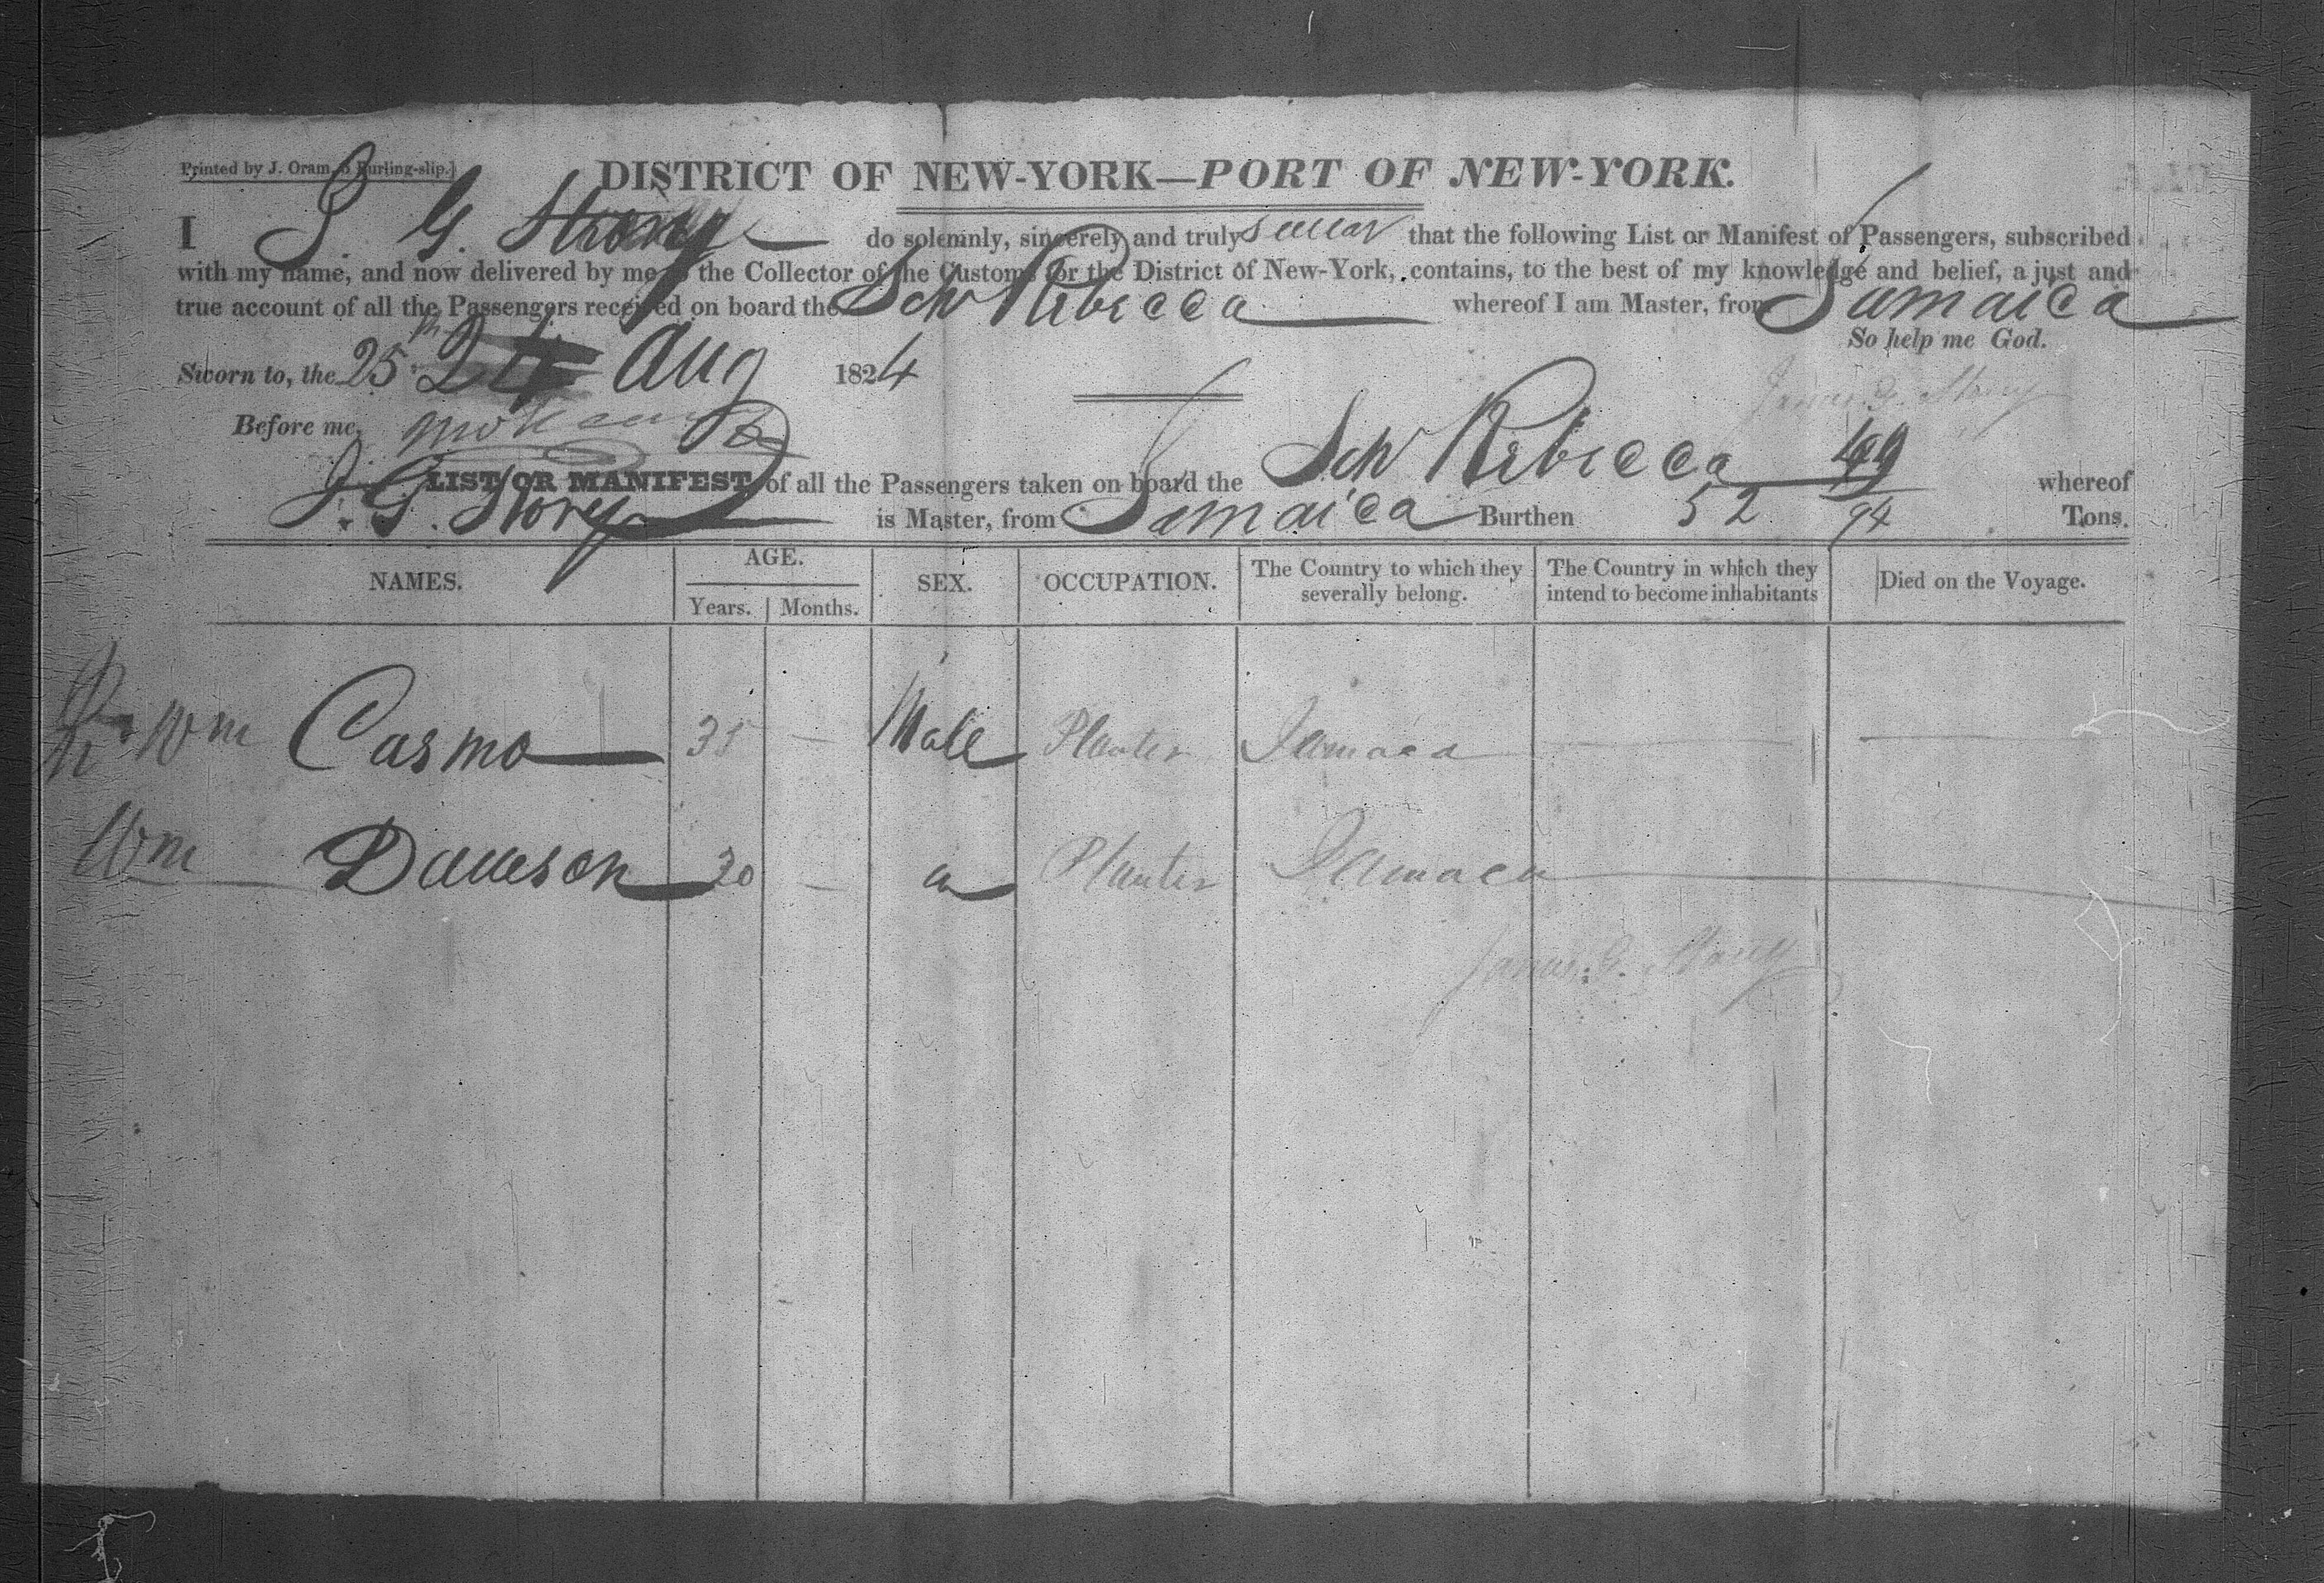 Printed by J. Oram, 5 Burling-slip.]
DISTRICT OF NEW-YORK—PORT OF NEW-YORK.
I J. G. Story do solemnly, sincerely and truly swear that the following List or Manifest of Passengers, subscribed
with my name, and now delivered by me to the Collector of the Customs for the District of New-York, contains, to the best of my knowledge and belief, a just and
true account of all the Passengers received on board the Sch Rebecca whereof I am Master, from Jamaica
So help me God.
Sworn to, the 25th 24 Aug 1824
James G. Story
Before me,
LIST OR MANIFEST of all the Passengers taken on board the Sch Rebecca whereof
J. G. Story is Master, from Jamaica Burthen 52 49/94 Tons.
NAMES. AGE. SEX. OCCUPATION. The Country to which they severally belong. The Country in which they intend to become inhabitants Died on the Voyage.
Years. Months.
Wm Casmo 35 — Male Planter Jamaca
Wm Daueson 30 — Planter Jamaca
James G. Story